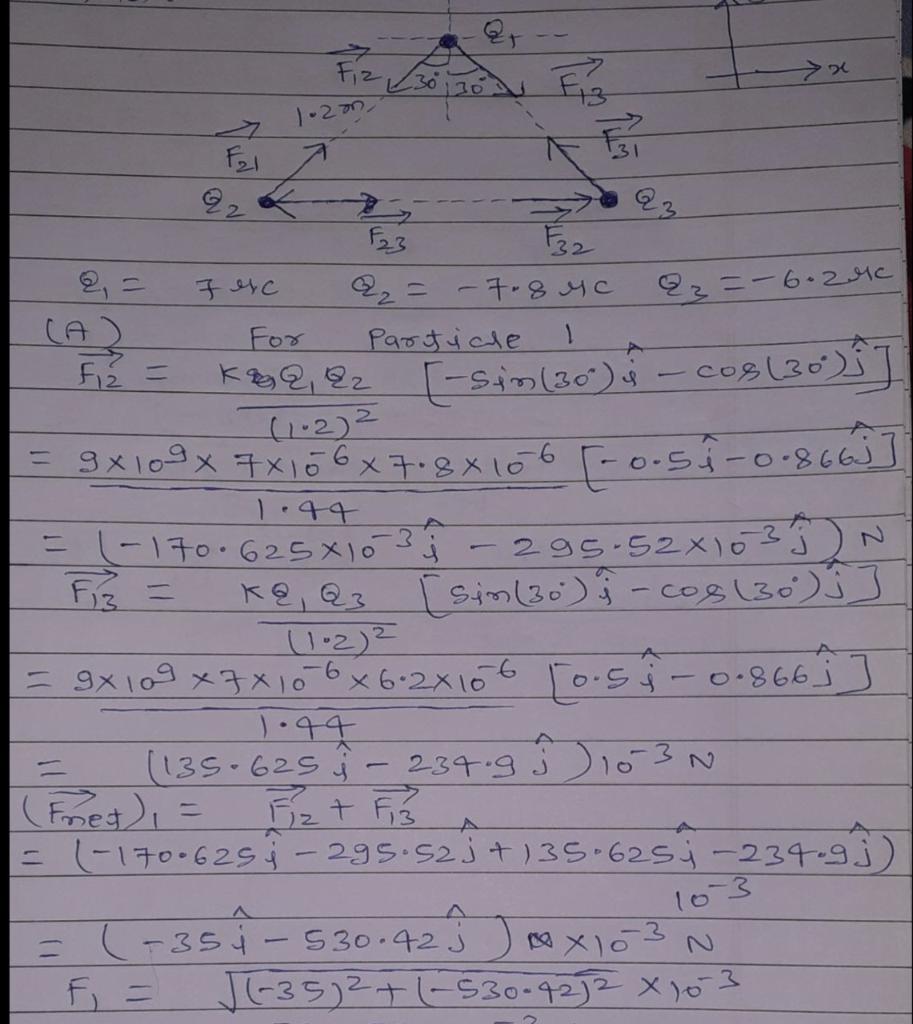 Q1
x
F12 30° 30° F13
1.2m
F21 F31
Q2 Q3
F23 F32
Q1 = 7 μC Q2 = -7.8 μC Q3 = -6.2 μC
(A) For Particle 1
F12 = K Q1 Q2 / (1.2)^2 [-sin(30°) î - cos(30°) ĵ]
= 9×10^9 × 7×10^-6 × 7.8×10^-6 / 1.44 [-0.5 î - 0.866 ĵ]
= (-170.625×10^-3 î - 295.52×10^-3 ĵ) N
F13 = K Q1 Q3 / (1.2)^2 [sin(30°) î - cos(30°) ĵ]
= 9×10^9 × 7×10^-6 × 6.2×10^-6 / 1.44 [0.5 î - 0.866 ĵ]
= (135.625 î - 234.9 ĵ) 10^-3 N
(Fnet)1 = F12 + F13
= (-170.625 î - 295.52 ĵ + 135.625 î - 234.9 ĵ)
10^-3
= (-35 î - 530.42 ĵ) × 10^-3 N
F1 = √(-35)^2 + (-530.42)^2 × 10^-3